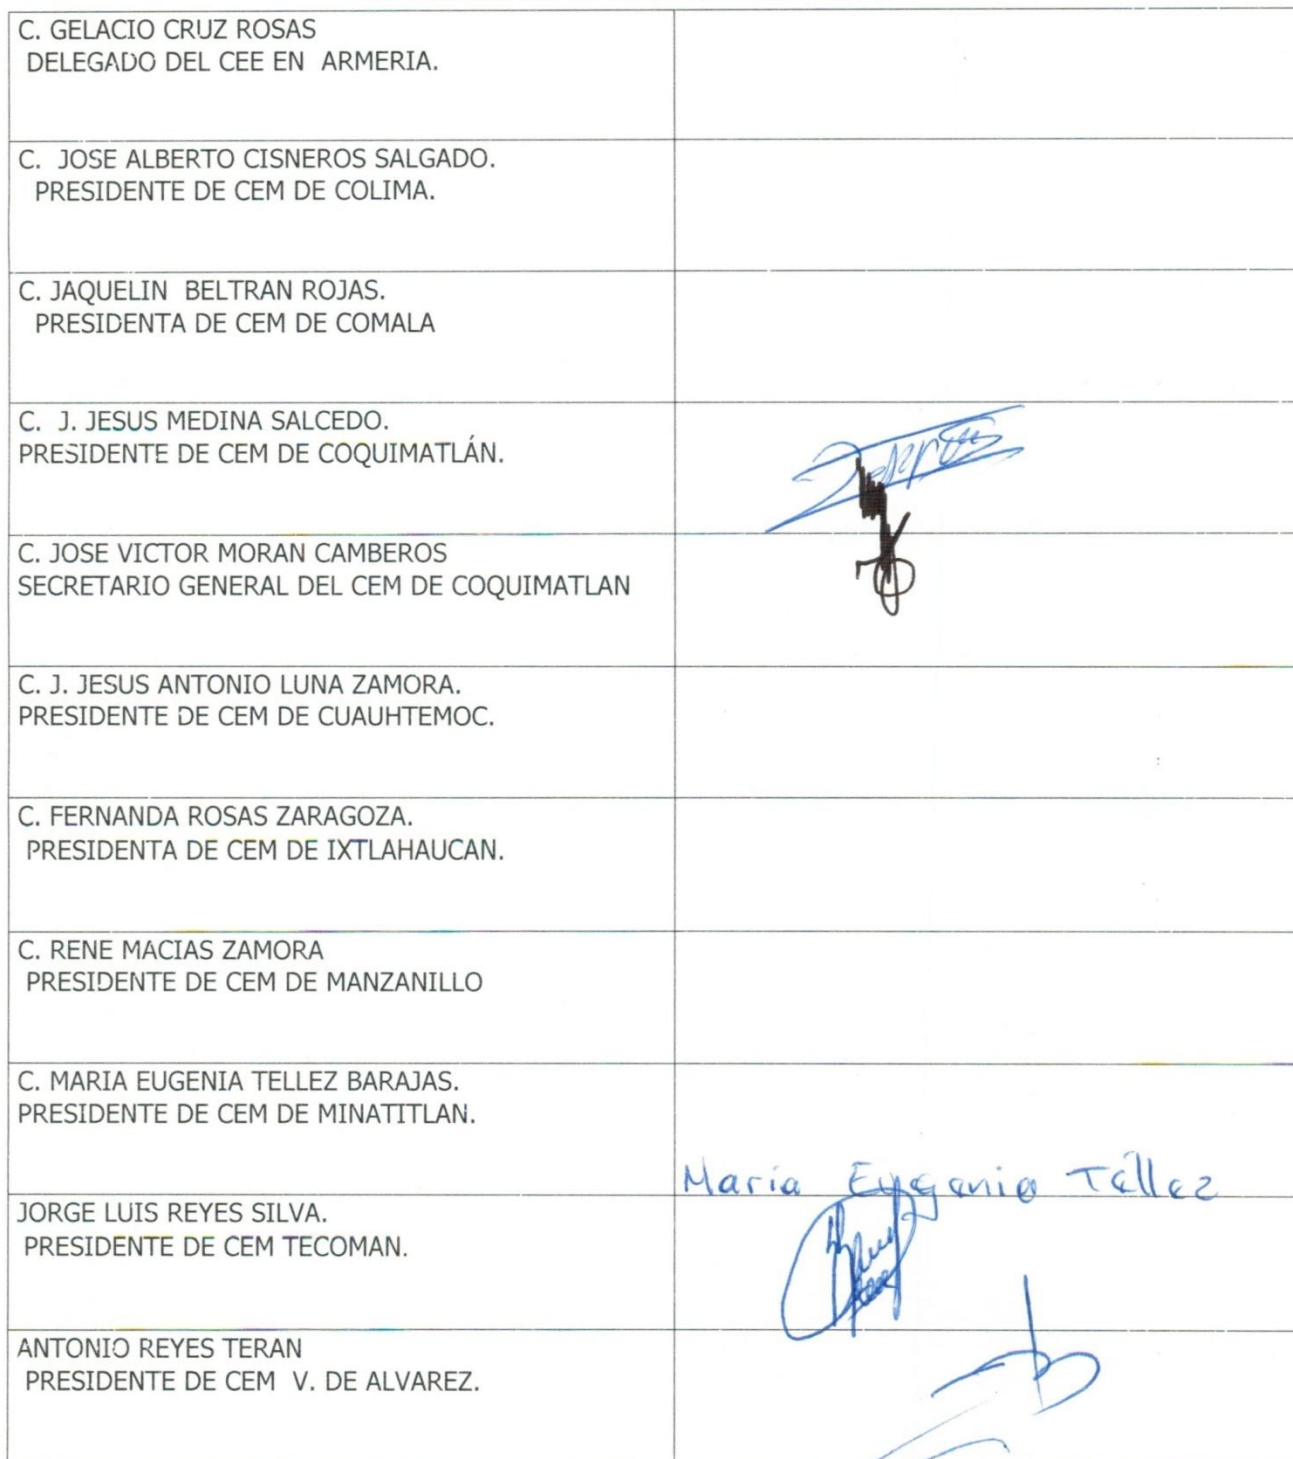 C. GELACIO CRUZ ROSAS
DELEGADO DEL CEE EN ARMERIA.
C. JOSE ALBERTO CISNEROS SALGADO.
PRESIDENTE DE CEM DE COLIMA.
C. JAQUELIN BELTRAN ROJAS.
PRESIDENTA DE CEM DE COMALA
C. J. JESUS MEDINA SALCEDO.
PRESIDENTE DE CEM DE COQUIMATLÁN.
C. JOSE VICTOR MORAN CAMBEROS
SECRETARIO GENERAL DEL CEM DE COQUIMATLAN
C. J. JESUS ANTONIO LUNA ZAMORA.
PRESIDENTE DE CEM DE CUAUHTEMOC.
C. FERNANDA ROSAS ZARAGOZA.
PRESIDENTA DE CEM DE IXTLAHAUCAN.
C. RENE MACIAS ZAMORA
PRESIDENTE DE CEM DE MANZANILLO
C. MARIA EUGENIA TELLEZ BARAJAS.
PRESIDENTE DE CEM DE MINATITLAN.
María Eugenia Téllez
JORGE LUIS REYES SILVA.
PRESIDENTE DE CEM TECOMAN.
ANTONIO REYES TERAN
PRESIDENTE DE CEM V. DE ALVAREZ.